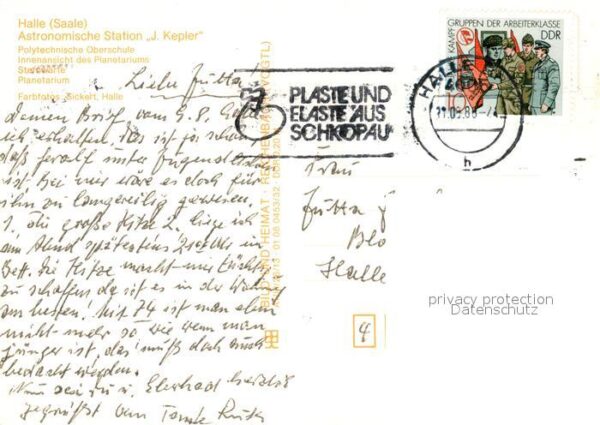 Halle (Saale)
Astronomische Station „J. Kepler"
Polytechnische Oberschule
Innenansicht des Planetariums
Sternwarte
Planetarium
Farbfotos: Sickert, Halle
KAMPFGRUPPEN DER ARBEITERKLASSE
DDR
10
HALLE
h
PLASTE UND
ELASTE AUS
SCHKOPAU
BILD UND HEIMAT · REICHENBACH (VOGTL)
01 08 0453/32
Liebe Jutta
Deinen Brief vom 9.8.
ich erhalten. Das ist ja schön
daß Gerald unter Jugendlichen
ist. Bei mir wäre es doch für
ihn zu langweilig gewesen.
1. die große Hitze 2. liege ich
am Abend spätestens in
Bett. Die Hitze macht uns
zu schaffen da ist es in der Wohnung
am besten! Mit 74 ist man eben
nicht mehr so wie wenn man
jünger ist, das muß doch auch
bedacht werden.
Nun sei Du u. Eberhard herzlichst
gegrüßt von Tante
Frau
Jutta
Halle
4
privacy protection
Datenschutz